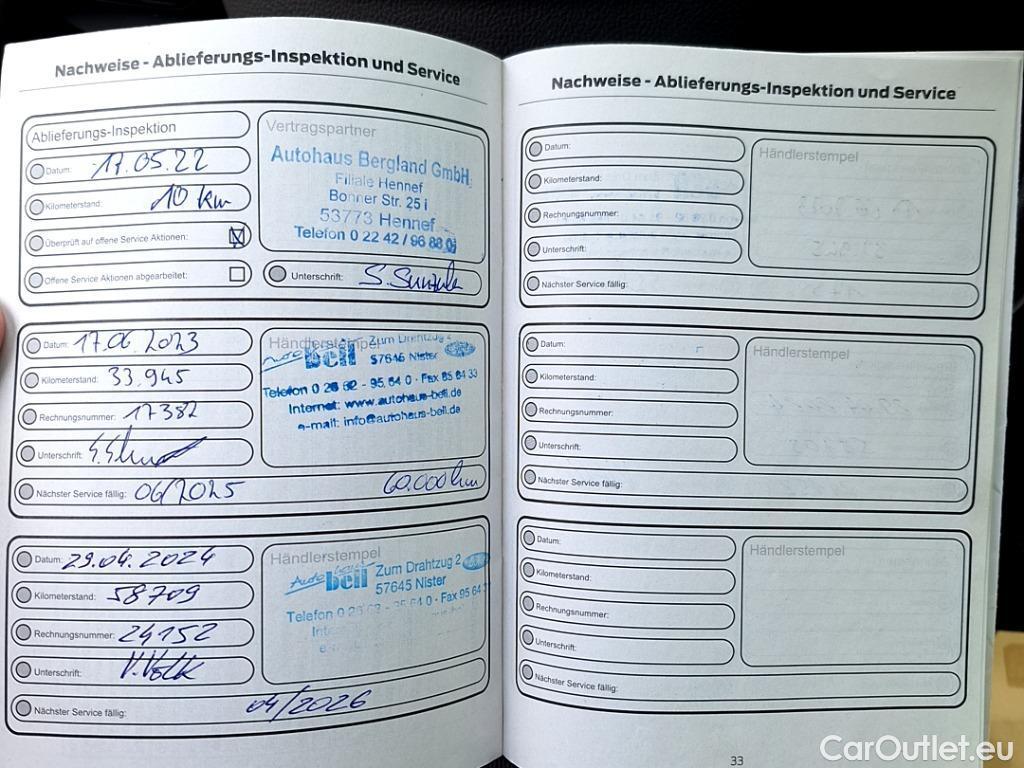 Nachweise - Ablieferungs-Inspektion und Service
Ablieferungs-Inspektion
Datum: 17.05.22
Kilometerstand: 10 km
Überprüft auf offene Service Aktionen:
Offene Service Aktionen abgearbeitet:
Vertragspartner
Autohaus Bergland GmbH
Filiale Hennef
Bonner Str. 25 i
53773 Hennef
Telefon 0 22 42 / 96 88 0
Unterschrift:
Datum: 17.06.2023
Kilometerstand: 33.945
Rechnungsnummer: 17382
Unterschrift:
Nächster Service fällig: 06/2025 60.000 km
Händlerstempel
Zum Drahtzug 2
Auto beil 57645 Nister
Telefon 0 26 62 - 95 64 0 · Fax 95 64 33
Internet: www.autohaus-beil.de
e-mail: info@autohaus-beil.de
Datum: 29.04.2024
Kilometerstand: 58709
Rechnungsnummer: 24152
Unterschrift: V. Volk
Nächster Service fällig: 04/2026
Händlerstempel
Auto beil Zum Drahtzug 2
57645 Nister
Telefon 0 26 62 - 95 64 0 · Fax 95 64
Nachweise - Ablieferungs-Inspektion und Service
Datum:
Kilometerstand:
Rechnungsnummer:
Unterschrift:
Nächster Service fällig:
Händlerstempel
Datum:
Kilometerstand:
Rechnungsnummer:
Unterschrift:
Nächster Service fällig:
Händlerstempel
Datum:
Kilometerstand:
Rechnungsnummer:
Unterschrift:
Nächster Service fällig:
Händlerstempel
33
CarOutlet.eu